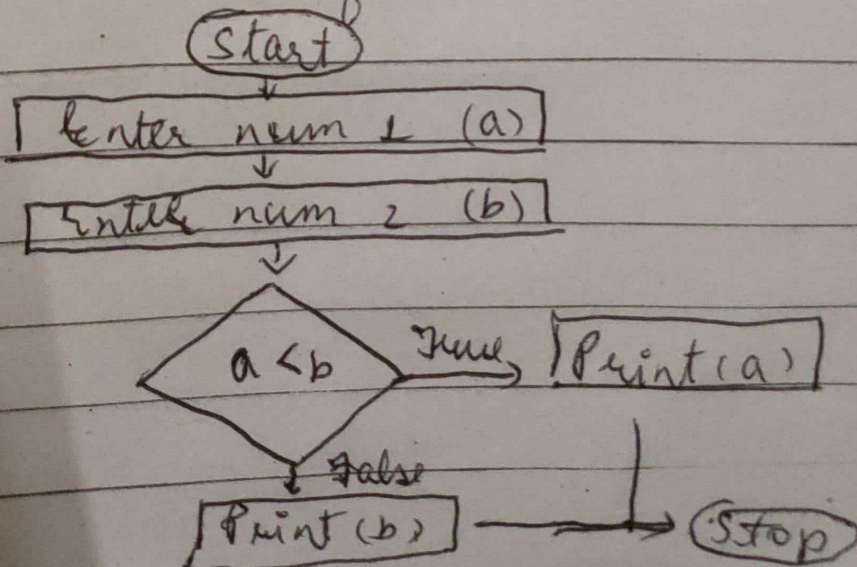 Start
Enter num 1 (a)
Enter num 2 (b)
a < b
True
Print (a)
False
Print (b)
Stop